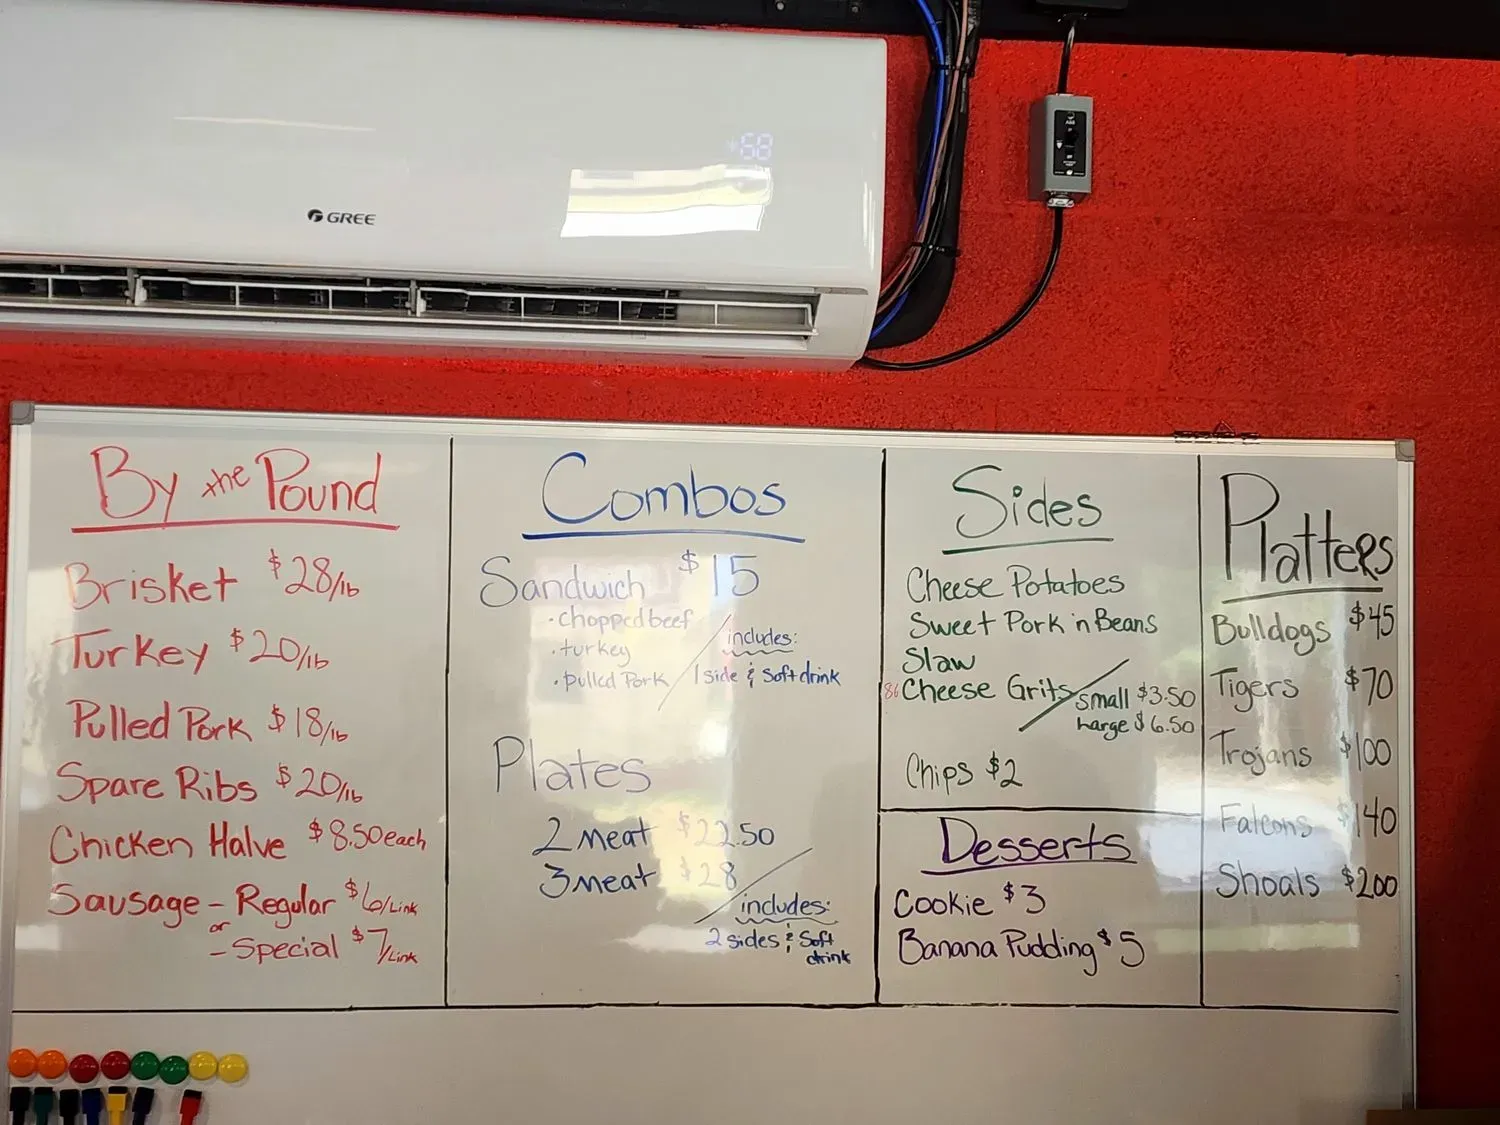 68
GREE
By the Pound
Brisket $28/lb
Turkey $20/lb
Pulled Pork $18/lb
Spare Ribs $20/lb
Chicken Halve $8.50 each
Sausage - Regular $6/Link
or
- Special $7/Link
Combos
Sandwich $15
• chopped beef
• turkey
• pulled Pork
includes:
1 side & Soft drink
Plates
2 meat $22.50
3 meat $28
includes:
2 sides & Soft
drink
Sides
Cheese Potatoes
Sweet Pork 'n Beans
Slaw
86 Cheese Grits
Small $3.50
Large $6.50
Chips $2
Desserts
Cookie $3
Banana Pudding $5
Platters
Bulldogs $45
Tigers $70
Trojans $100
Falcons $140
Shoals $200